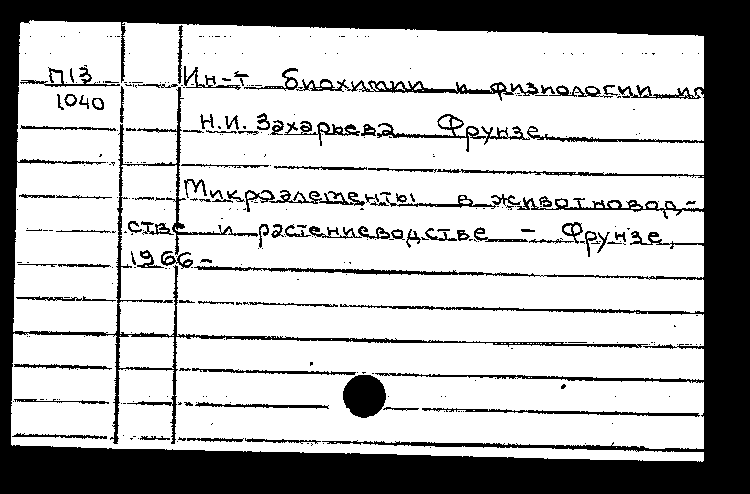 П13 Ин-т биохимии и физиологии им
1040
Н.И. Захарьева Фрунзе.
Микроэлементы в животновод-
стве и растениеводстве - Фрунзе,
1966-